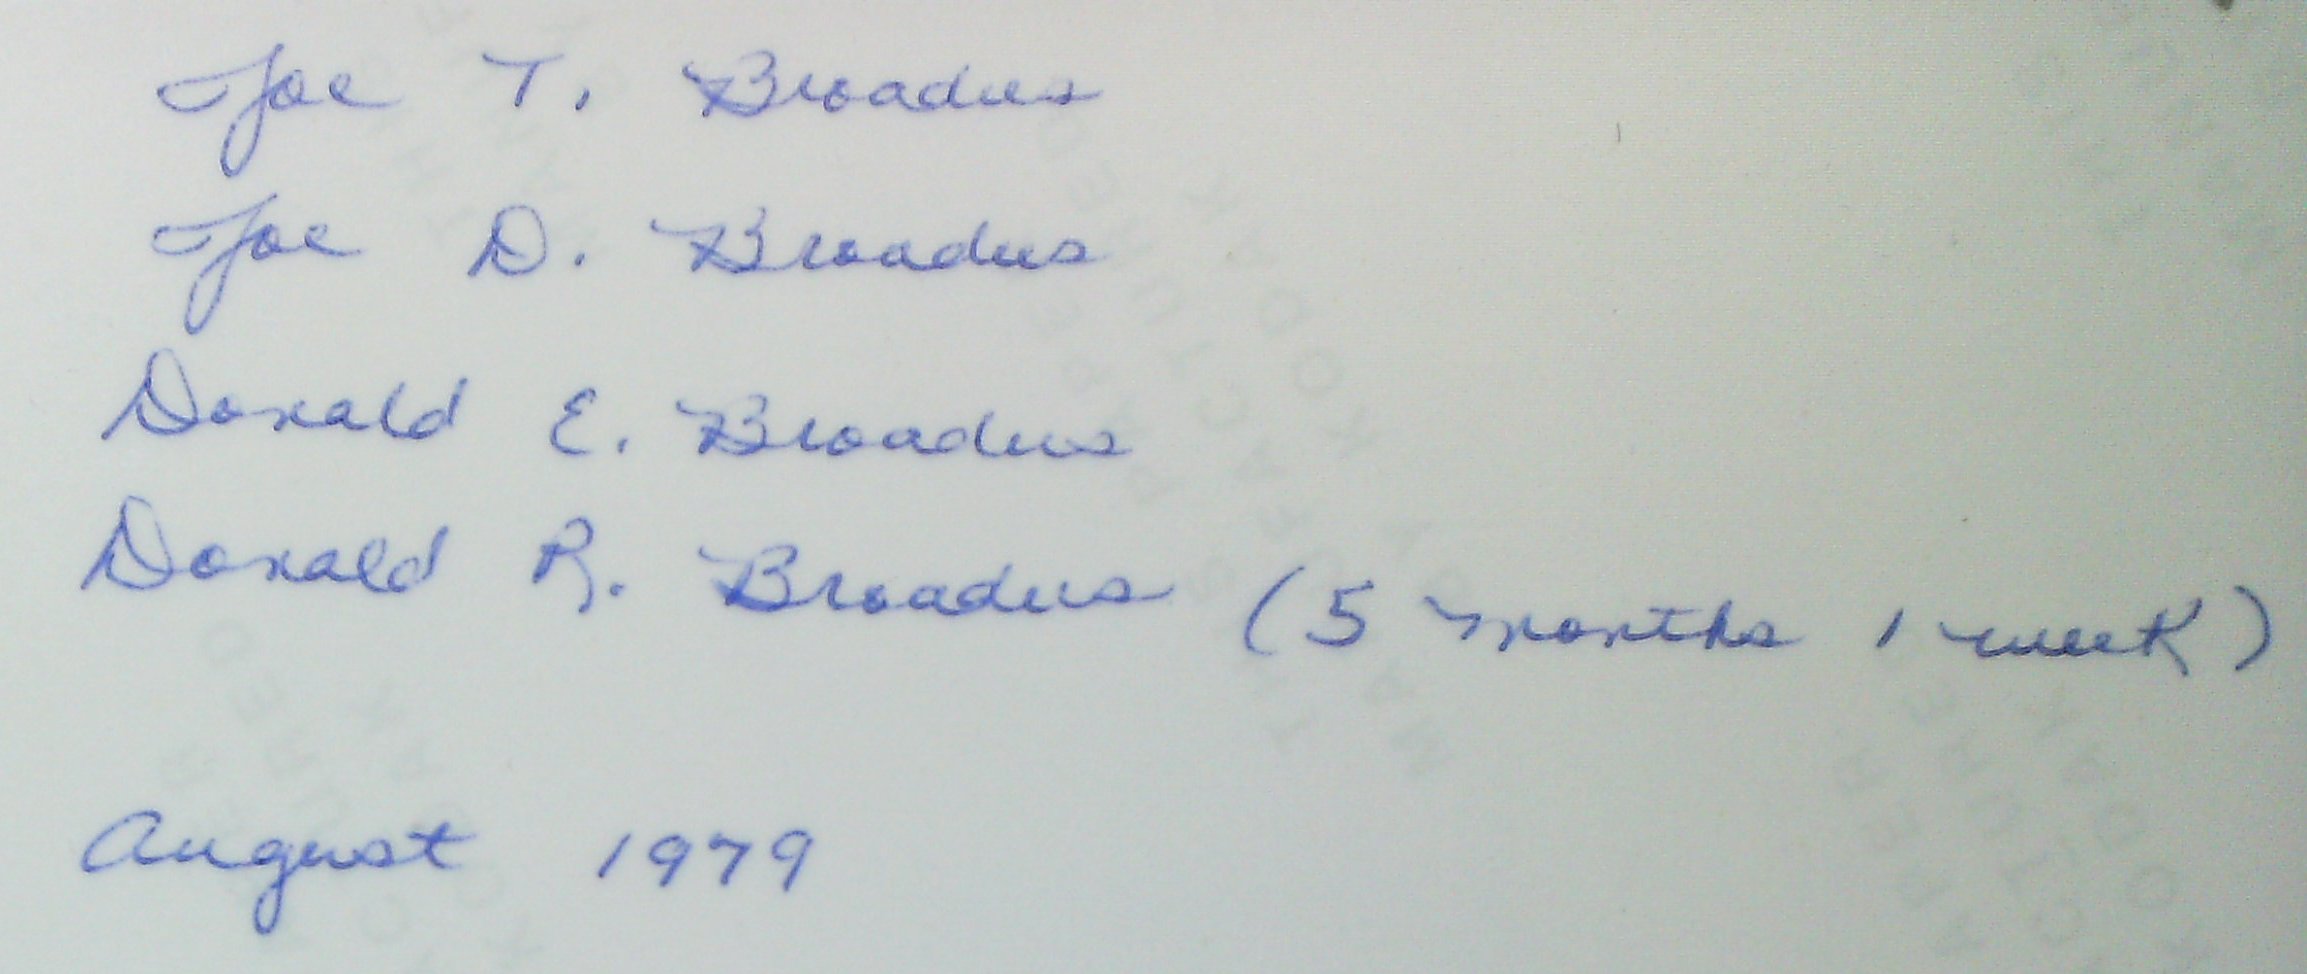 Joe T. Broadus
Joe D. Broadus
Donald E. Broadus
Donald R. Broadus (5 months 1 week)
August 1979